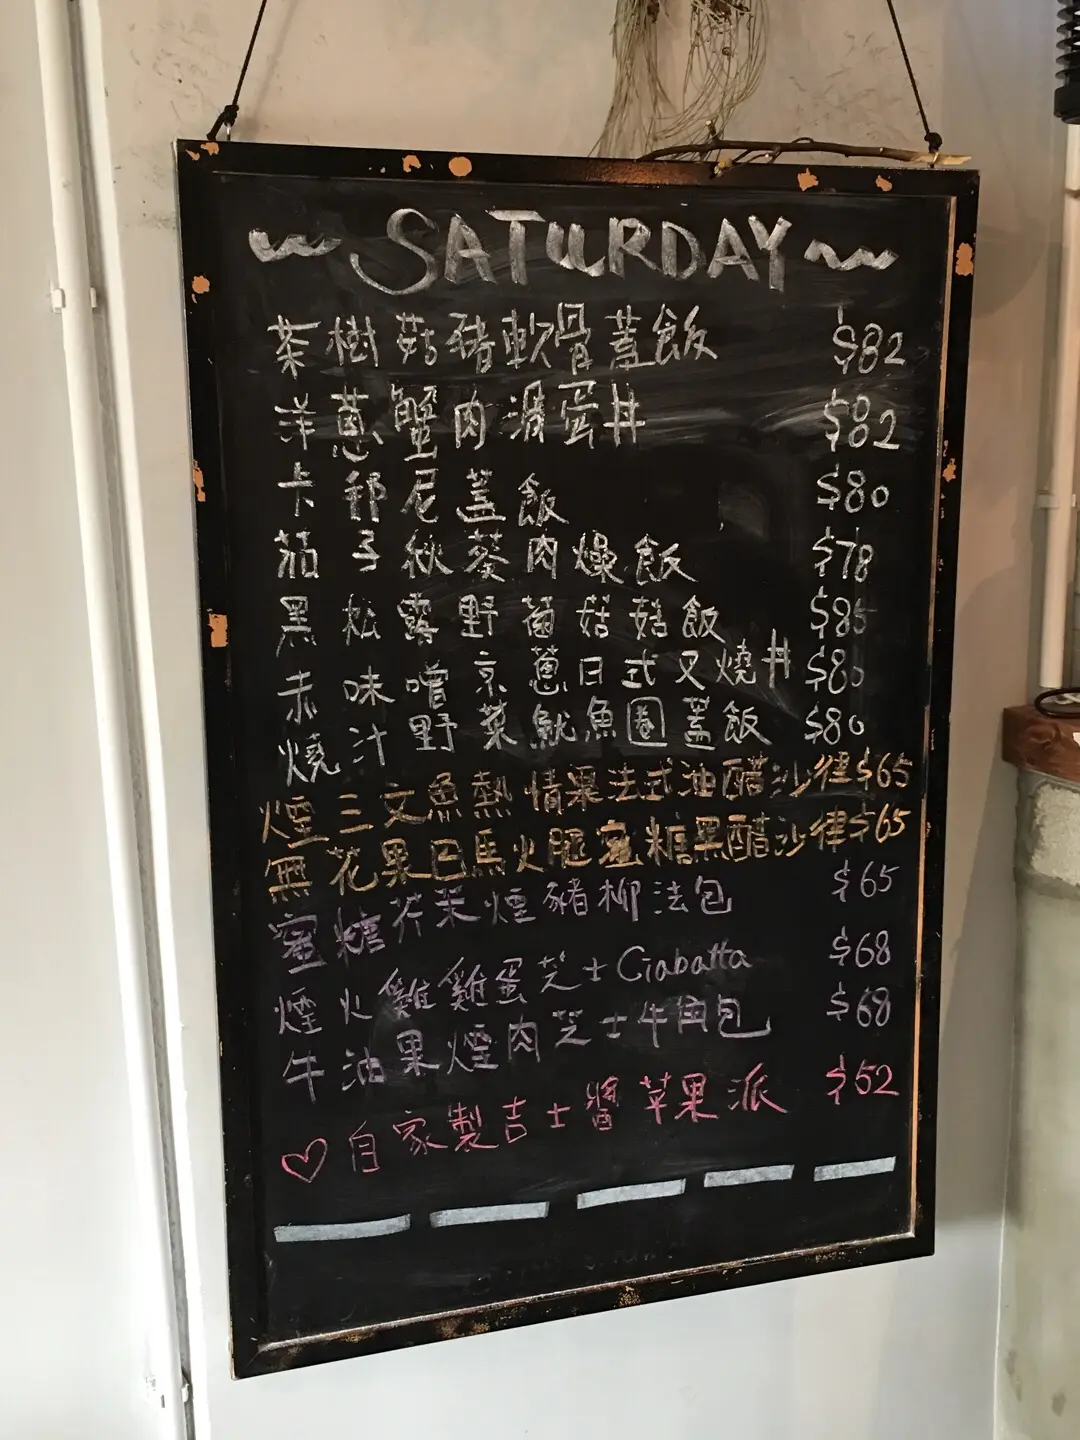 SATURDAY
茶樹菇豬軟骨蓋飯 $82
洋蔥蟹肉滑蛋丼 $82
卡邦尼蓋飯 $80
茄子秋葵肉燥飯 $78
黑松露野菌菇菇飯 $85
赤味噌京蔥日式叉燒丼 $80
燒汁野菜魷魚圈蓋飯 $80
煙三文魚熱情果法式油醋沙律 $65
無花果巴馬火腿蜜糖黑醋沙律 $65
蜜糖芥茉煙豬柳法包 $65
煙火雞雞蛋芝士Ciabatta $68
牛油果煙肉芝士牛角包 $68
♡自家製吉士醬苹果派 $52